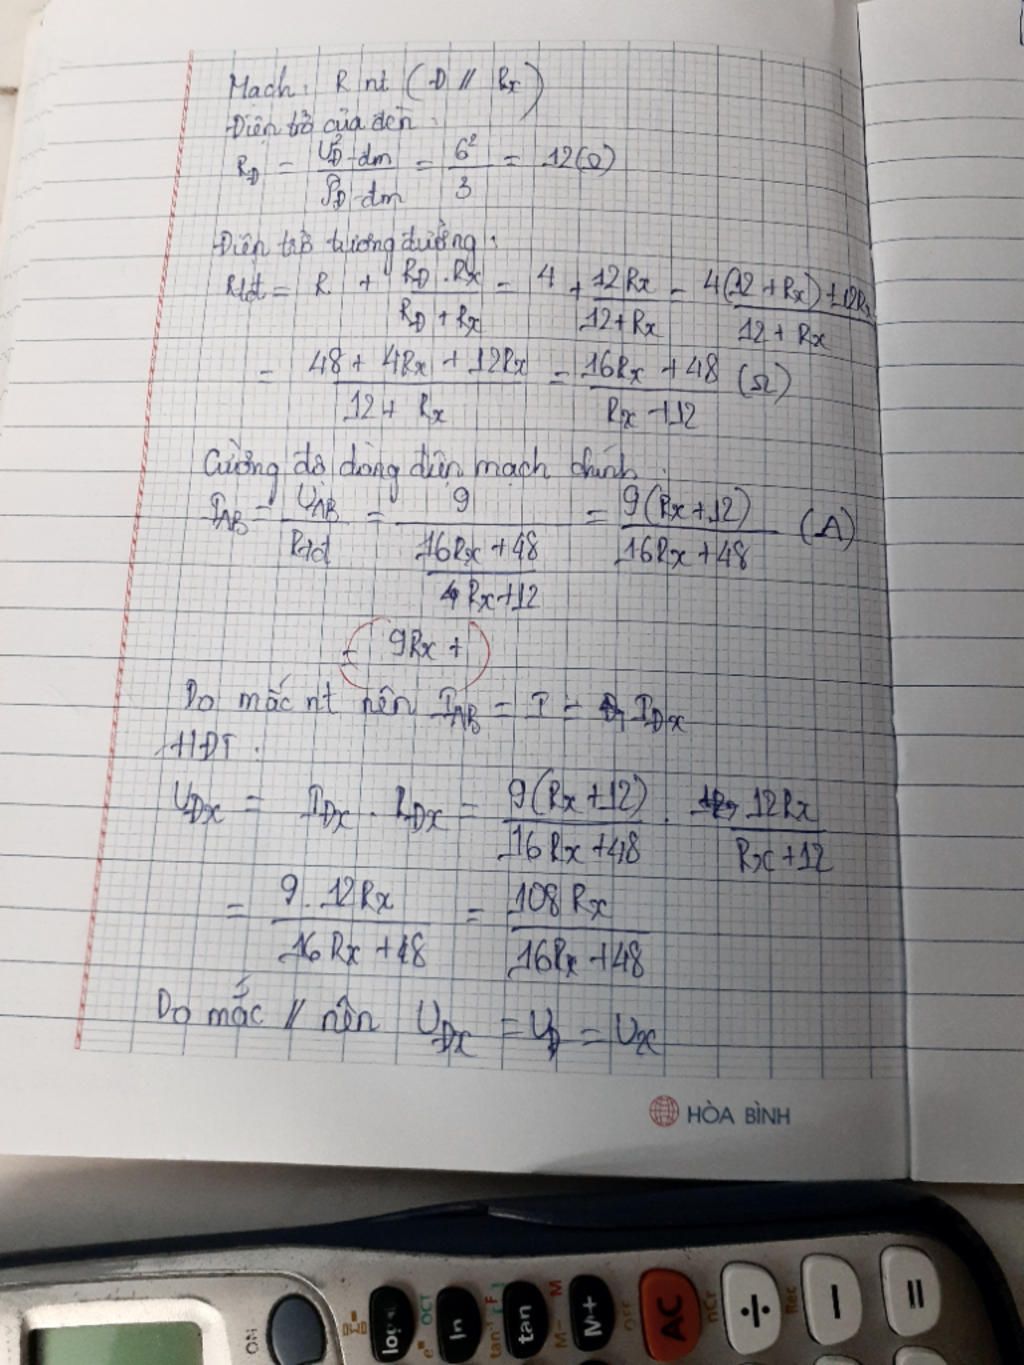 Mạch: R nt (Đ // Rx)
Điện trở của đèn:
RĐ = U²Đ-đm / PĐ-đm = 6² / 3 = 12(Ω)
Điện trở tương đương:
Rtđ = R + RĐ.Rx / RĐ+Rx = 4 + 12Rx / 12+Rx = 4(12+Rx)+12Rx / 12+Rx
= 48+4Rx+12Rx / 12+Rx = 16Rx+48 / Rx+12 (Ω)
Cường độ dòng điện mạch chính:
IAB = UAB / Rtđ = 9 / 16Rx+48 / Rx+12 = 9(Rx+12) / 16Rx+48 (A)
= 9Rx +
Do mắc nt nên IAB = I = IĐx
HĐT:
UĐx = IĐx . RĐx = 9(Rx+12) / 16Rx+48 . 12Rx / Rx+12
= 9.12Rx / 16Rx+48 = 108Rx / 16Rx+48
Do mắc // nên UĐx = UĐ = Ux
HÒA BÌNH
ON
log
OCT
e
ln
tan⁻¹
F
tan
M-
M
M+
AC
nCr
÷
Rec
−
=